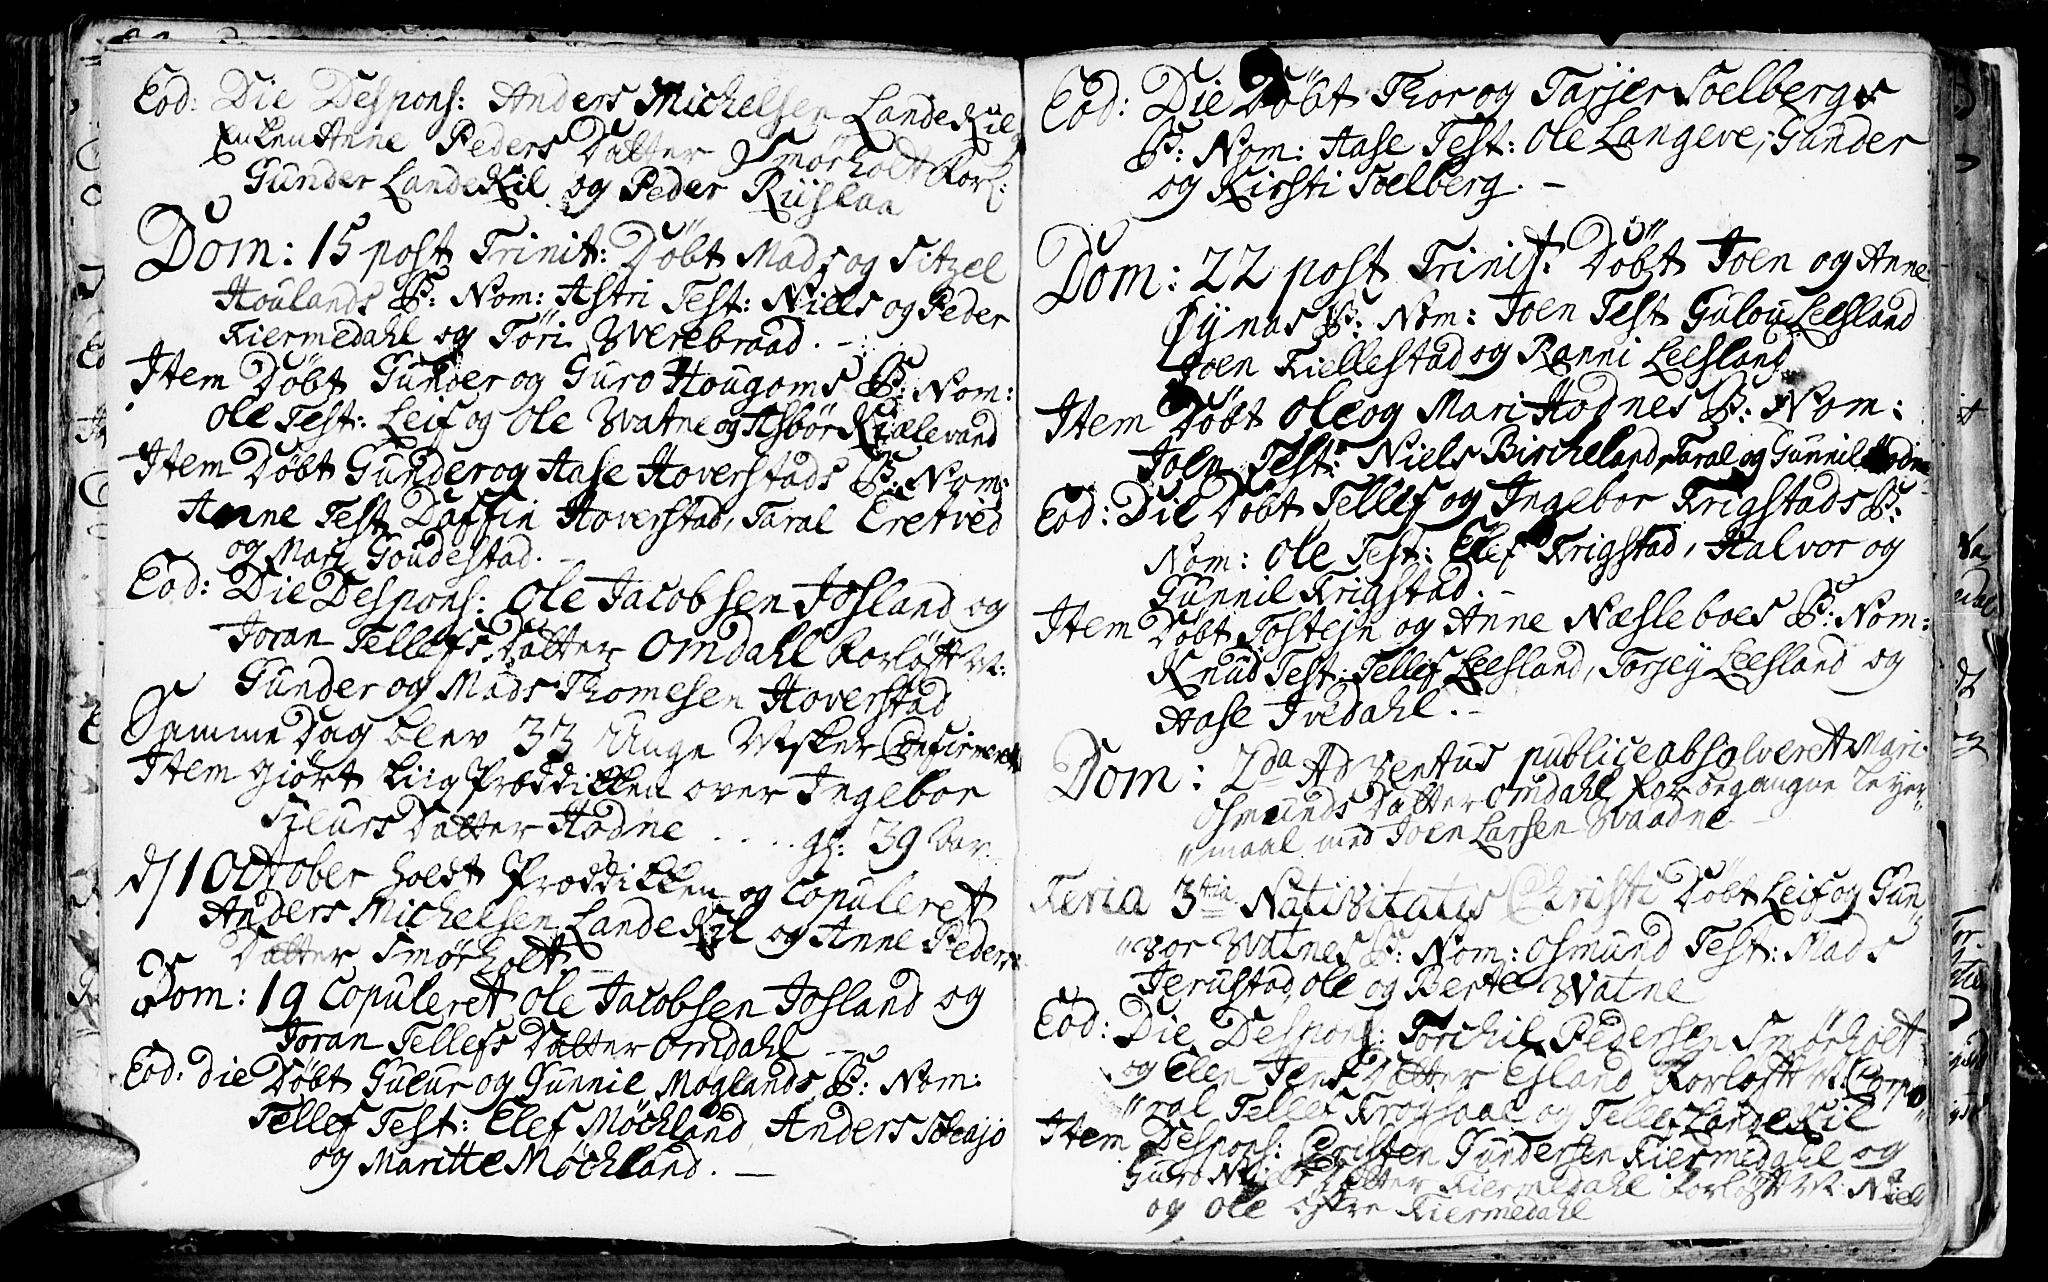 Eod: Die Despons: Anders Michelsen LandeKil
Enken Anne Peders Datter Smørholt Forl:
Gunder LandeKil og Peder Riislaa
Dom: 15 post Trinit: Döbt Mads og Sitzel
Houlands B: Nom: Astri Test: Niels og Peder
Kiermedahl og Töri Werebraad. –
Item Döbt Gunder og Guro Hougoms B: Nom:
Ole Test: Leif og Ole Watne og Asbör Kialevand
Item Döbt Gunder og Aase Hoverstads B: Nom:
Anne Test Daffin Hoverstad, Taral Eretved
og Mari Goudestad. –
Eod: Die Despons: Ole Jacobsen Josland og
Joran Tellefs Datter Omdahl Forlöfft M:
Gunder og Mads Thomesen Hoverstad
Samme Dag blev 33 Unge Msker Confirmerét
Item giort Liig Prædikken over Ingebor
Datter Hodne . . . . . gl: 39 Aar.
d/1 October holdt Prædikken og Copuleret
Anders Michelsen LandeKil og Anne Peders
Datter Smørholt –
Dom: 19 Copuleret Ole Jacobsen Josland og
Joran Tellefs Datter Omdahl –
Eod: die Döbt Gulur og Gunnil Moglands B: Nom:
Tellef Test: Elef Möchland, Anders
og Maritte Möchland. –
Eod: Die Döbt Thor og Tarjer Soelbergs
B: Nom: Aase Test: Ole Langeve, Gunder
og Kirsti Soelberg. –
Dom: 22 post Trinit: Döbt Joen og Anne
Öynas B: Nom: Joen Test Gulou Leesland
Joen Kiellestad og Ranni Leesland
Item Döbt Ole og Mari Hodnes B: Nom:
Joen Test: Niels Bircheland, Taral og Gunnil Hodne
Eod: Die Döbt Tellef og Ingebor Frigstads B:
Nom: Ole Test: Elef Frigstad, Halvor og
Gunnil Frigstad. –
Item Döbt Tostejn og Anne Næsleboes B: Nom:
Knud Test: Tellef Leesland, Torjej Leesland og
Aase Ivedahl. –
Dom: 2da Adventus publice absolveret Mari
Osmunds Datter Omdahl for begangne Leyer„
„maal med Joen Larsen Waadne
Feria 3tia Nativitatis Christi Döbt Leif og Gun„
„vor Watnes B: Nom: Osmund Test: Mads
Jerustad, Ole og Berte Watne
Eod: Die Despons: Torchil Pedersen Smörholt
og Elen Jens Datter Esland Forlofft M: Corpo„
„ral Tellef Frogsaae og Tellef LandeKil
Item Despons: Cristen Gundersen Kiermedahl og
Guro Niels Datter Kiermedahl Forlöfft M: Niels
og Ole Östre Kiermedahl